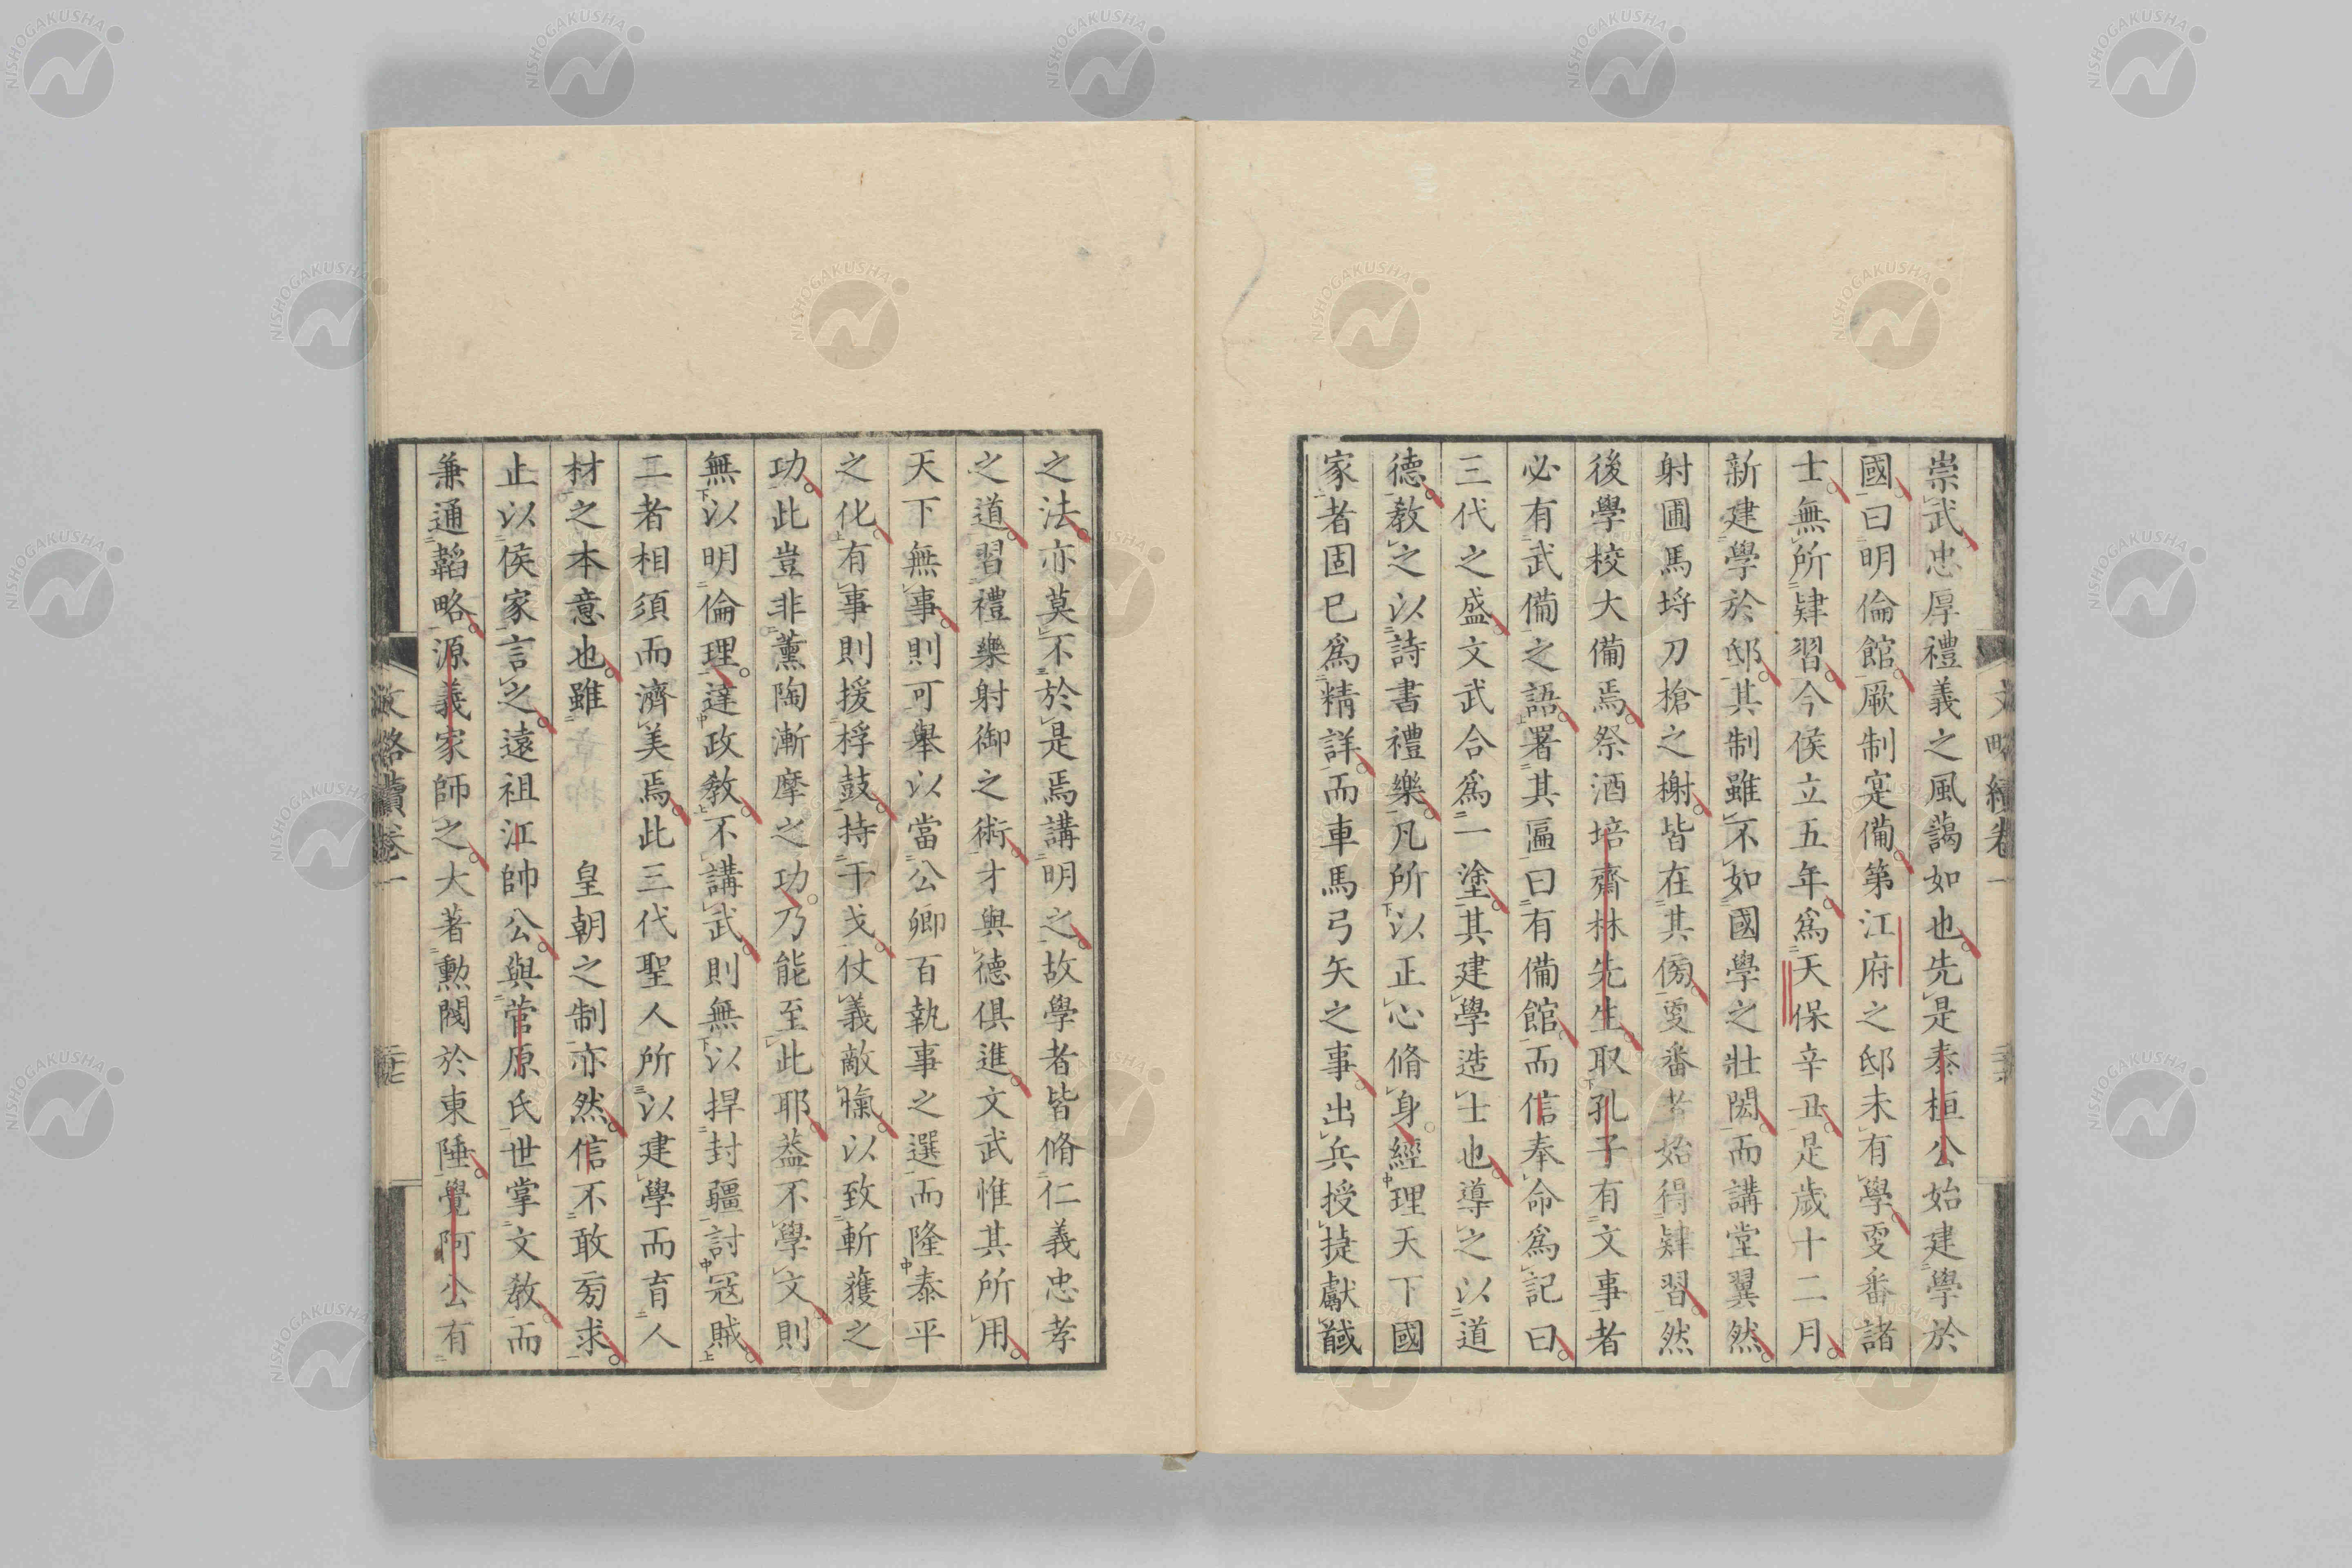 崇武忠厚禮義之風藹如也先是泰桓公始建學於
國曰明倫館厥制寔備第江府之邸未有學㪅番諸
士無所肄習今侯立五年爲天保辛丑是歲十二月
新建學於邸其制雖不如國學之壯閎而講堂翼然
射圃馬埓刀槍之榭皆在其傍㪅番者始得肄習然
後學校大備焉祭酒培齋林先生取孔子有文事者
必有武備之語署其匾曰有備館而信奉命爲記曰
三代之盛文武合爲一塗其建學造士也導之以道
德教之以詩書禮樂凡所以正心脩身經理天下國
家者固已爲精詳而車馬弓矢之事出兵授捷獻馘
之法亦莫不於是焉講明之故學者皆脩仁義忠孝
之道習禮樂射御之術才與德俱進文武惟其所用
天下無事則可舉以當公卿百執事之選而隆泰平
之化有事則援桴鼓持干戈仗義敵愾以致斬獲之
功此豈非薰陶漸摩之功乃能至此耶蓋不學文則
無以明倫理達政教不講武則無以捍封疆討冦賊
二者相須而濟美焉此三代聖人所以建學而育人
材之本意也雖 皇朝之制亦然信不敢旁求
止以侯家言之遠祖江帥公與菅原氏世掌文教而
兼通韜略源義家師之大著勲閥於東陲覺阿公有
文略續卷一
NISHOGAKUSHA